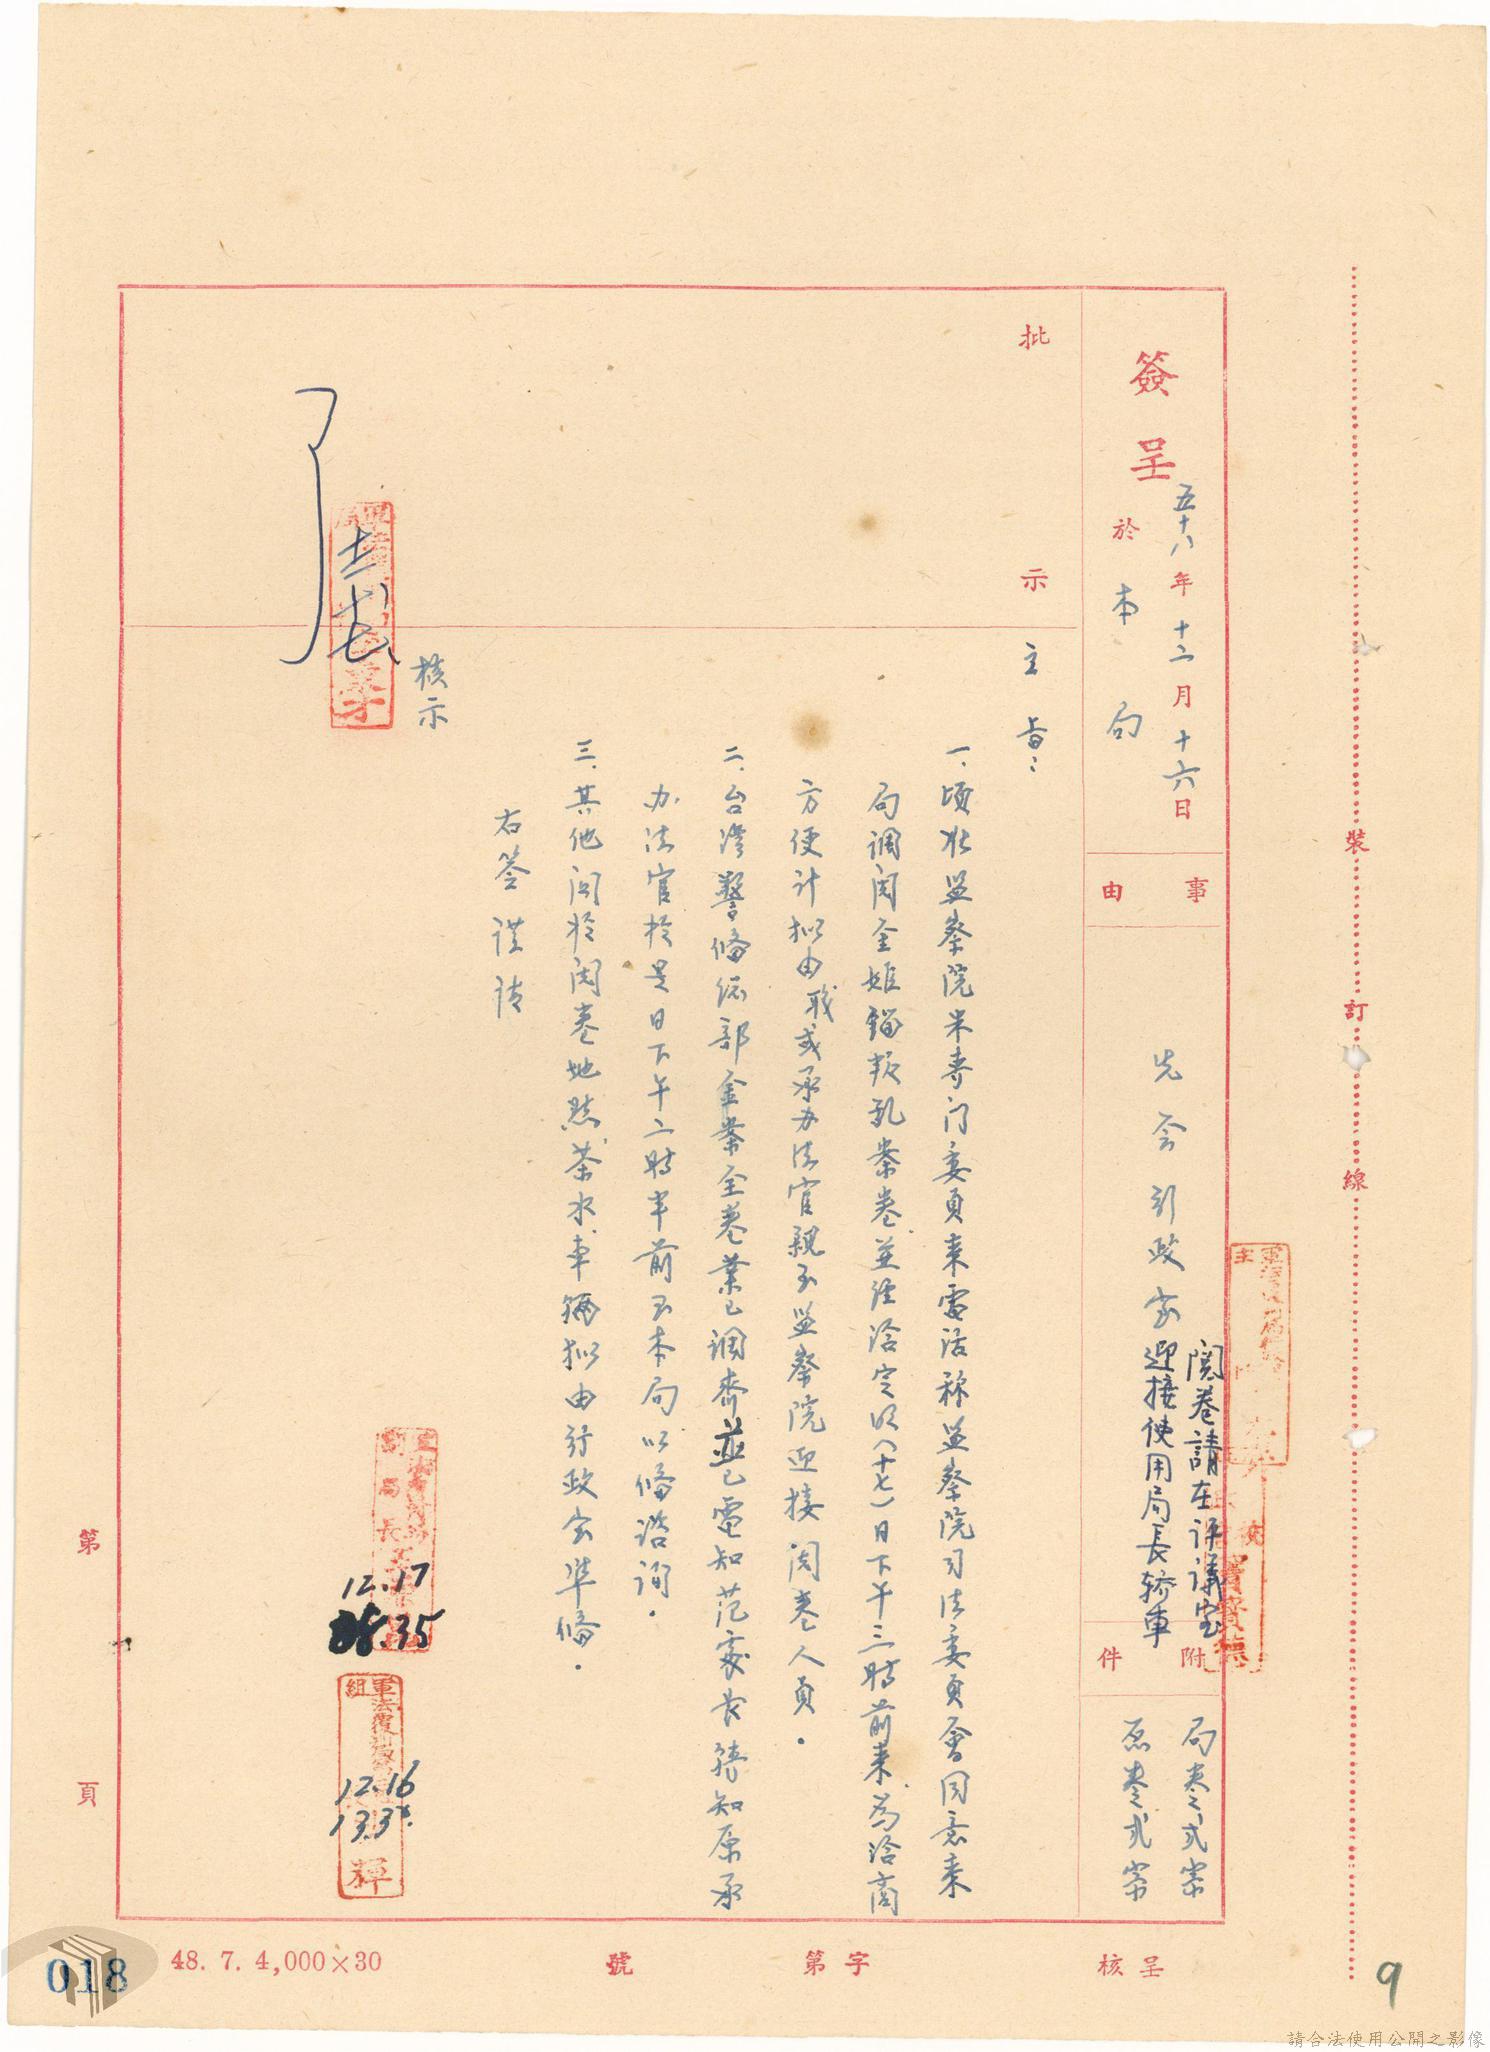 簽呈
五十八年十二月十六日
於本局
事由
先會行政室
閱卷請在評議室
迎接使用局長轎車
附件
局卷弍宗
原卷弍宗
批示
主旨：
一、頃准監察院米專门委員來電话称監察院司法委員會同意來
局调閱金姬鎦叛乱案卷並經洽定明(十七)日下午三時前來為洽商
方便计拟由職或承办法官親至監察院迎接閱卷人員。
二、台湾警備總部金案全卷業已调齊並已電知范處長轉知原承
办法官於是日下午二時半前至本局以備諮詢。
三、其他関於閱卷地點茶水車輛拟由行政室準備。
右簽謹请
核示
了
十二
十七
12.17
12.16
輝
裝
訂
線
第
頁
48. 7. 4,000×30
號
第字
核呈
018
9
請合法使用公開之影像